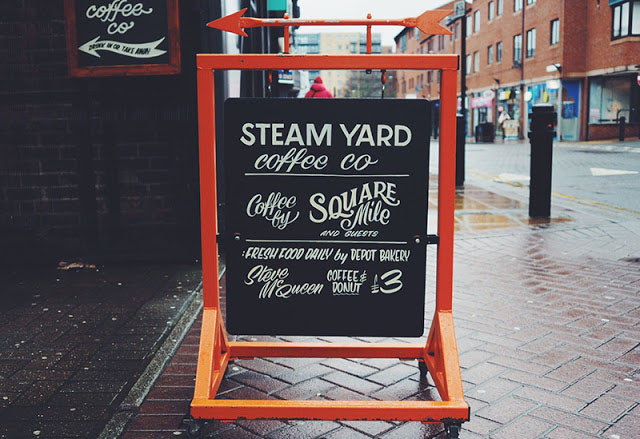 coffee
co
DRINK IN OR TAKE AWAY!
STEAM YARD
coffee co
Coffee
by
SQUARE
Mile
AND GUESTS
FRESH FOOD DAILY by DEPOT BAKERY
Steve
McQueen
COFFEE &
DONUT
£3